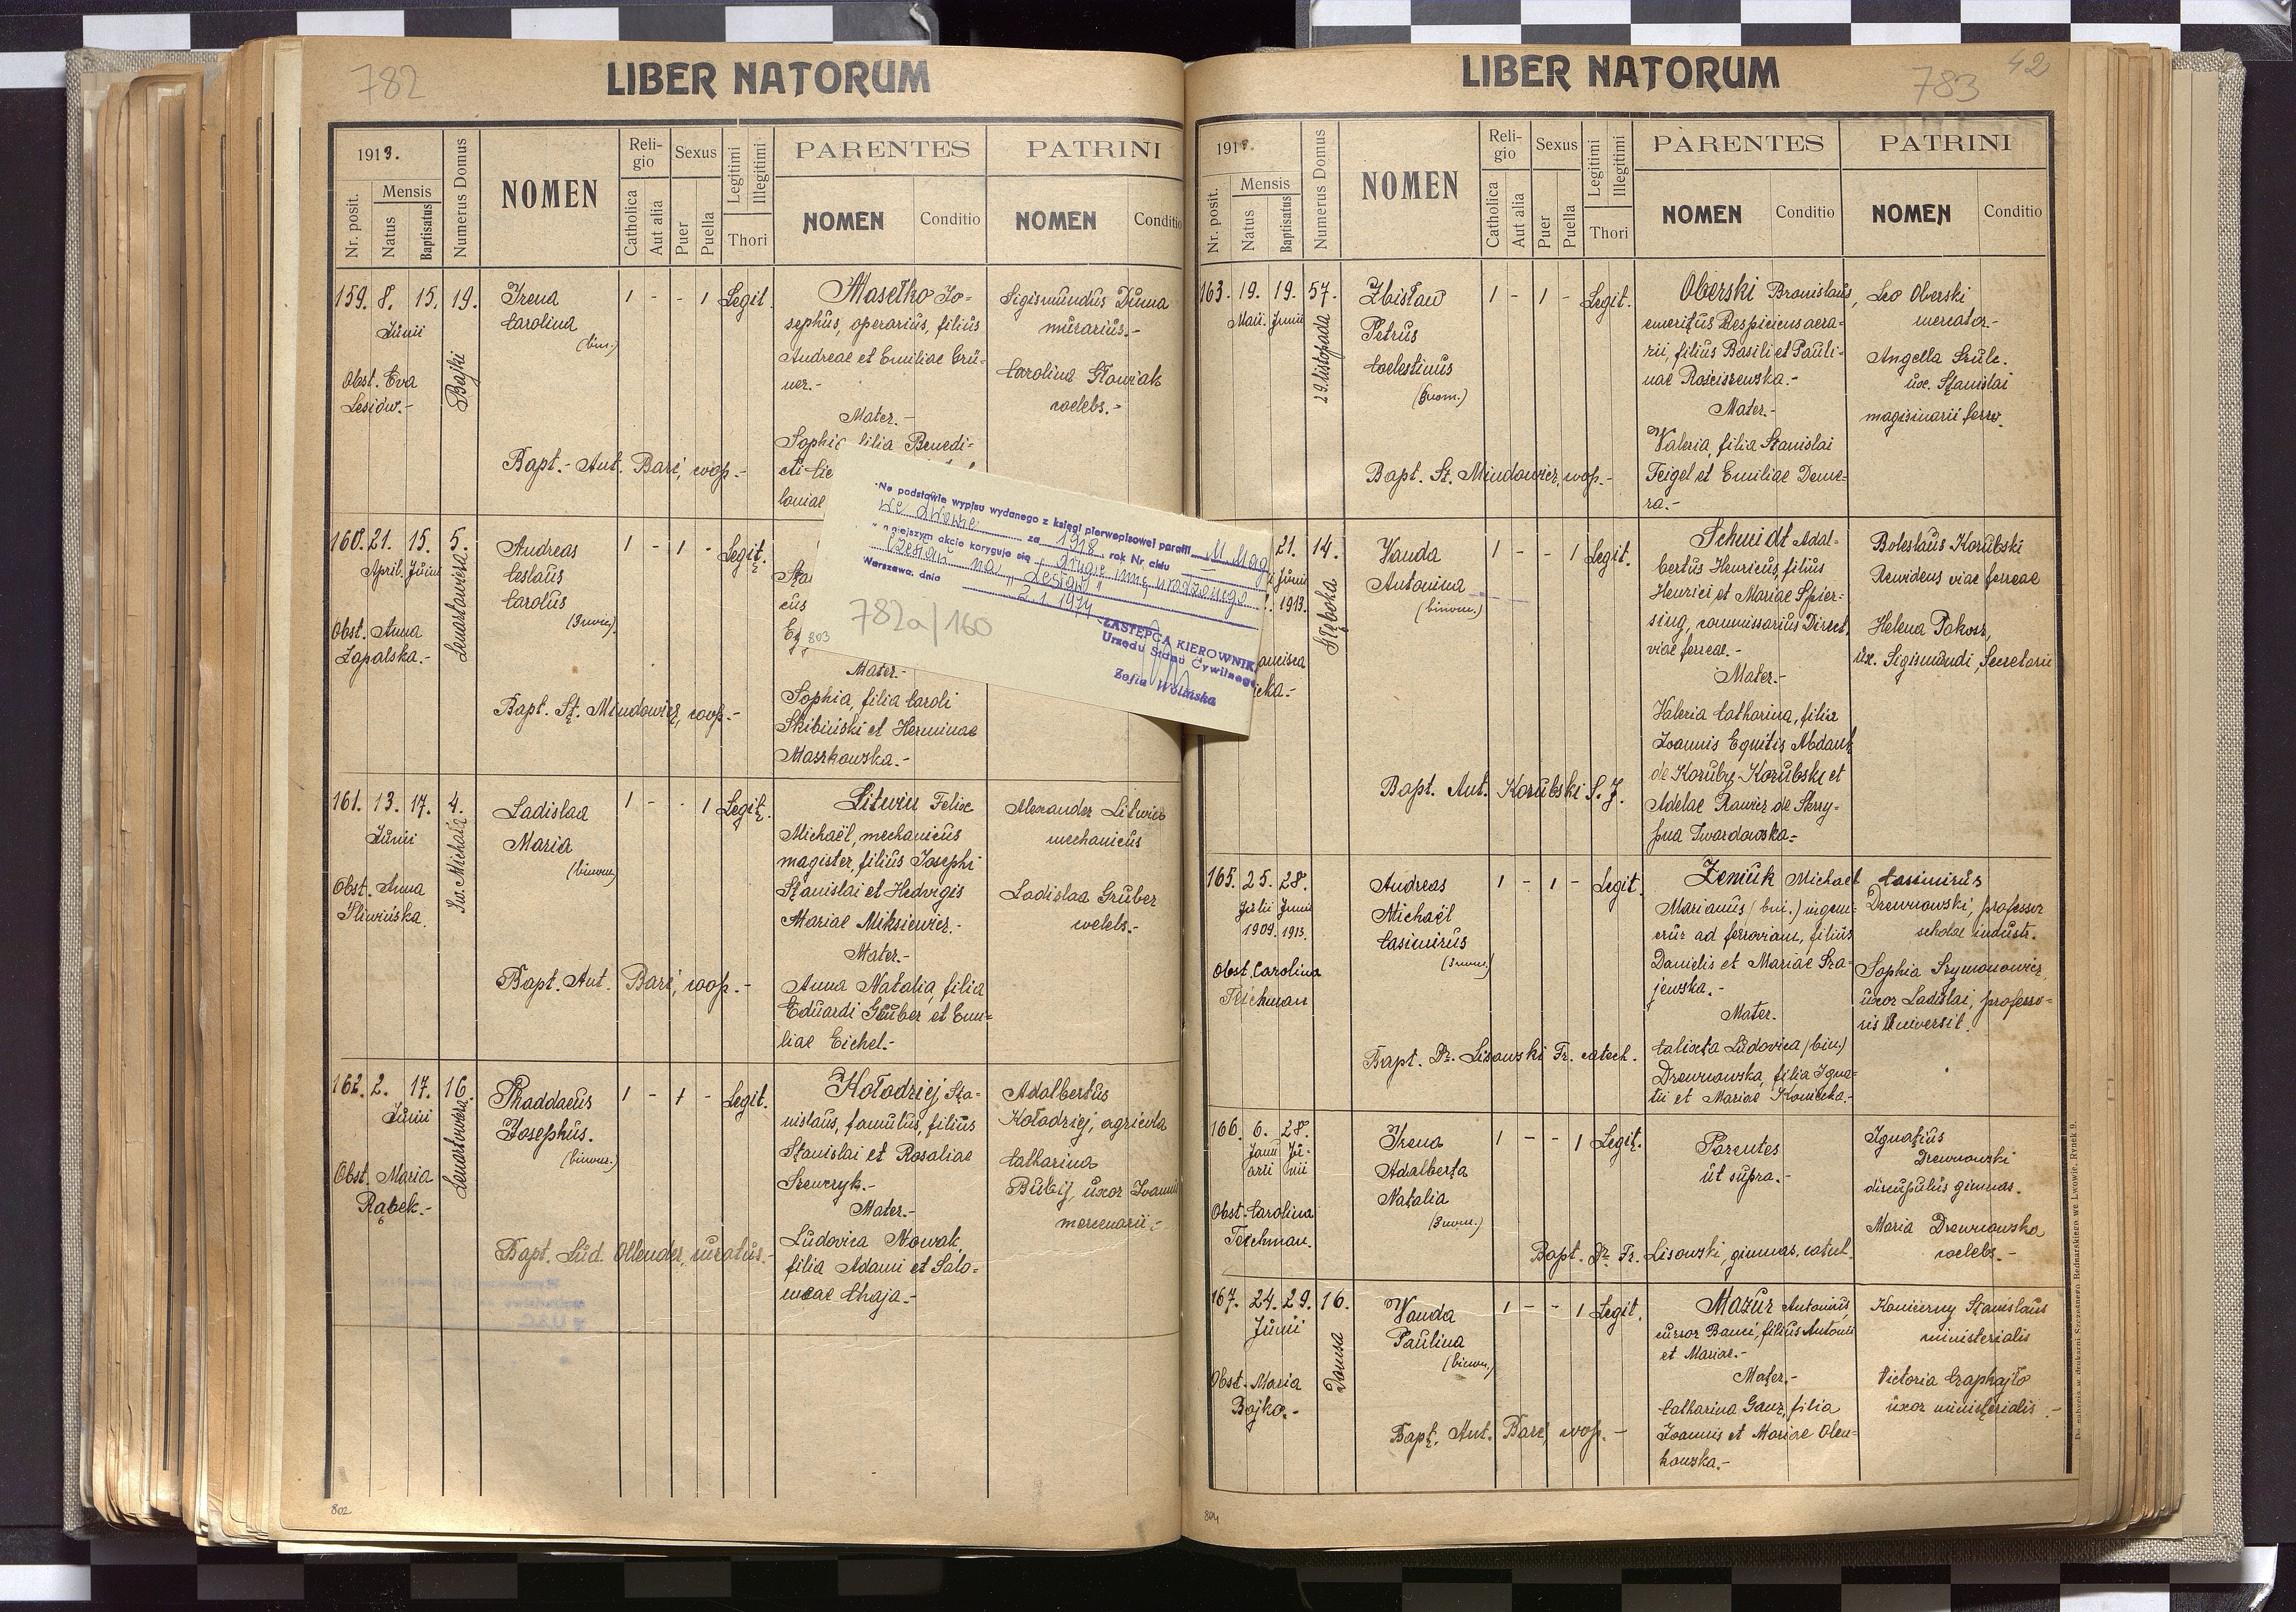 782
LIBER NATORUM
1913.
Nr. posit.
Mensis
Natus
Baptisatus
Numerus Domus
NOMEN
Religio
Catholica
Aut alia
Sexus
Puer
Puella
Legitimi
Illegitimi
Thori
PARENTES
NOMEN
Conditio
PATRINI
NOMEN
Conditio
159. 8. 15. 19.
Junii
Bajki
Obst. Eva
Lesiów.-
Irena
Carolina
(bin.)
1 - - 1 Legit.
Masełko Jo-
sephus, operarius, filius
Andreae et Emiliae Grü-
ner.-
Mater.-
Sophia filia Benedi-
cti
loniae
Sigismundus Duma
murarius.-
Carolina Głowiak
coelebs.-
Bapt.- Ant. Barć, coop.-
160. 21. 15. 5.
April. Junii
Lenartowicza
Obst. Anna
Zapalska.-
Andreas
Ceslaus
Carolus
(3nom.)
1 - 1 - Legit.
Mater.-
Sophia, filia Caroli
Skibiński et Herminae
Maszkowska.-
Bapt. St. Mindowicz, coop.-
Na podstawie wypisu wydanego z księgi pierwopisowej parafii M. Mag
we Lwowie za 1913 rok Nr. aktu
niniejszym akcie koryguje się drugie imię urodzonego
Czesław na "Cesław"
Warszawa, dnia 2.1.1974
ZASTĘPCA KIEROWNIKA
Urzędu Stanu Cywilnego
Zofia Wolińska
782a/160
803
161. 13. 17. 4.
Junii
Św. Michała
Obst. Anna
Śliwińska.
Ladislaa
Maria
(binom.)
1 - - 1 Legit.
Litwin Felix
Michaël, mechanicus
magister, filius Josephi
Stanislai et Hedvigis
Mariae Miksiewicz.-
Mater.-
Anna Natalia, filia
Eduardi Gruber et Emi-
liae Eichel.-
Alexander Litwin
mechanicus
Ladislaa Gruber
coelebs.-
Bapt. Ant. Barć, coop.-
162. 2. 17. 16.
Junii
Lenartowicza
Obst. Maria
Rąbek.-
Thaddaeus
Josephus.
(binom.)
1 - 1 - Legit.
Kołodziej Sta-
nislaus, famulus, filius
Stanislai et Rosaliae
Szewczyk.-
Mater.-
Ludovica Nowak,
filia Adami et Salo-
meae Chaja.-
Adalbertus
Kołodziej, agricola
Catharina
Bubij, uxor Joannis
mercenarii.-
Bapt. Lud. Ollender, curatus.-
802
42
783
LIBER NATORUM
1913.
Nr. posit.
Mensis
Natus
Baptisatus
Numerus Domus
NOMEN
Religio
Catholica
Aut alia
Sexus
Puer
Puella
Legitimi
Illegitimi
Thori
PARENTES
NOMEN
Conditio
PATRINI
NOMEN
Conditio
163. 19. 19. 57.
Maii. Junii
29. listopada
Zbisław
Petrus
Coelestinus
(3nom.)
1 - 1 - Legit.
Oberski Bronislaus,
emeritus Respiciens aera-
rii, filius Basili et Pauli-
nae Rościszewska.-
Mater.-
Valeria, filia Stanislai
Feigel et Emiliae Deme-
ra.-
Leo Oberski
mercator.-
Angella Szulc.
ux. Stanislai
magisinarii ferro.
Bapt. St. Mindowicz, coop.-
21. 14.
Junii
1913.
Głęboka
Vanda
Antonina
(binom.)
1 - - 1 Legit.
Schmidt Adal-
bertus Henricus, filius
Henrici et Mariae Spier-
sing, commissarius Direct.
viae ferreae.-
Mater.-
Valeria Catharina, filia
Joannis Equitis Abdank
de Koruby Korubski et
Adelae Rawicz de Skrzy-
pna Twardowska.-
Boleslaus Korubski
Revidens viae ferreae
Helena Pakosz,
ux. Sigismundi, Secretarii
Bapt. Ant. Korubski S.J.
165. 25. 28.
Julii Junii
1909. 1913.
Obst. Carolina
Teichman
Andreas
Michaël
Casimirus
(3nom.)
1 - 1 - Legit.
Zeniuk Michael
Marianus (bin.) ingeni-
erur ad ferroviam, filius
Danielis et Mariae Sza-
jewska.-
Mater.
Calixta Ludovica (bin.)
Drewnowska, filia Igna-
tii et Mariae Konicka.-
Casimirus
Drewnowski, professor
scholae industr.
Sophia Szymonowicz
uxor Ladislai, professo-
ris Universit.
Bapt. Dr. Lisowski Fr. catech.
166. 6. 28.
Janu Ju-
arii nii
Obst. Carolina
Teichman.
Irena
Adalberta
Natalia
(3nom.)
1 - - 1 Legit.
Parentes
ut supra.-
Ignatius
Drewnowski
discipulus gimnas.
Maria Drewnowska
coelebs.-
Bapt. Dr. Fr. Lisowski, gimnas. catech.
167. 24. 29. 16.
Junii
Domsa
Obst. Maria
Bojko.-
Vanda
Paulina
(binom.)
1 - - 1 Legit.
Mazur Antonius,
cursor Banci, filius Antonii
et Mariae.-
Mater.-
Catharina Ganz, filia
Joannis et Mariae Olen-
kowska.-
Konierny Stanislaus
ministerialis
Victoria Czaphajło
uxor ministerialis.-
Bapt. Ant. Barć, coop.-
804